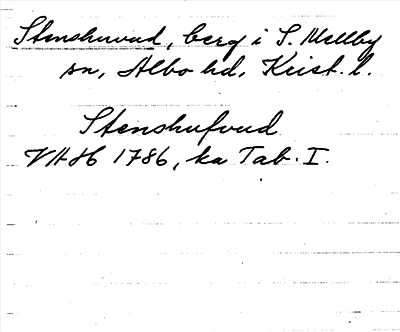 Stenshuvud, berg i S. Mellby
sn, Albo hd, Krist. l.
Stenshufvud
VAH 1786, ka Tab. I.